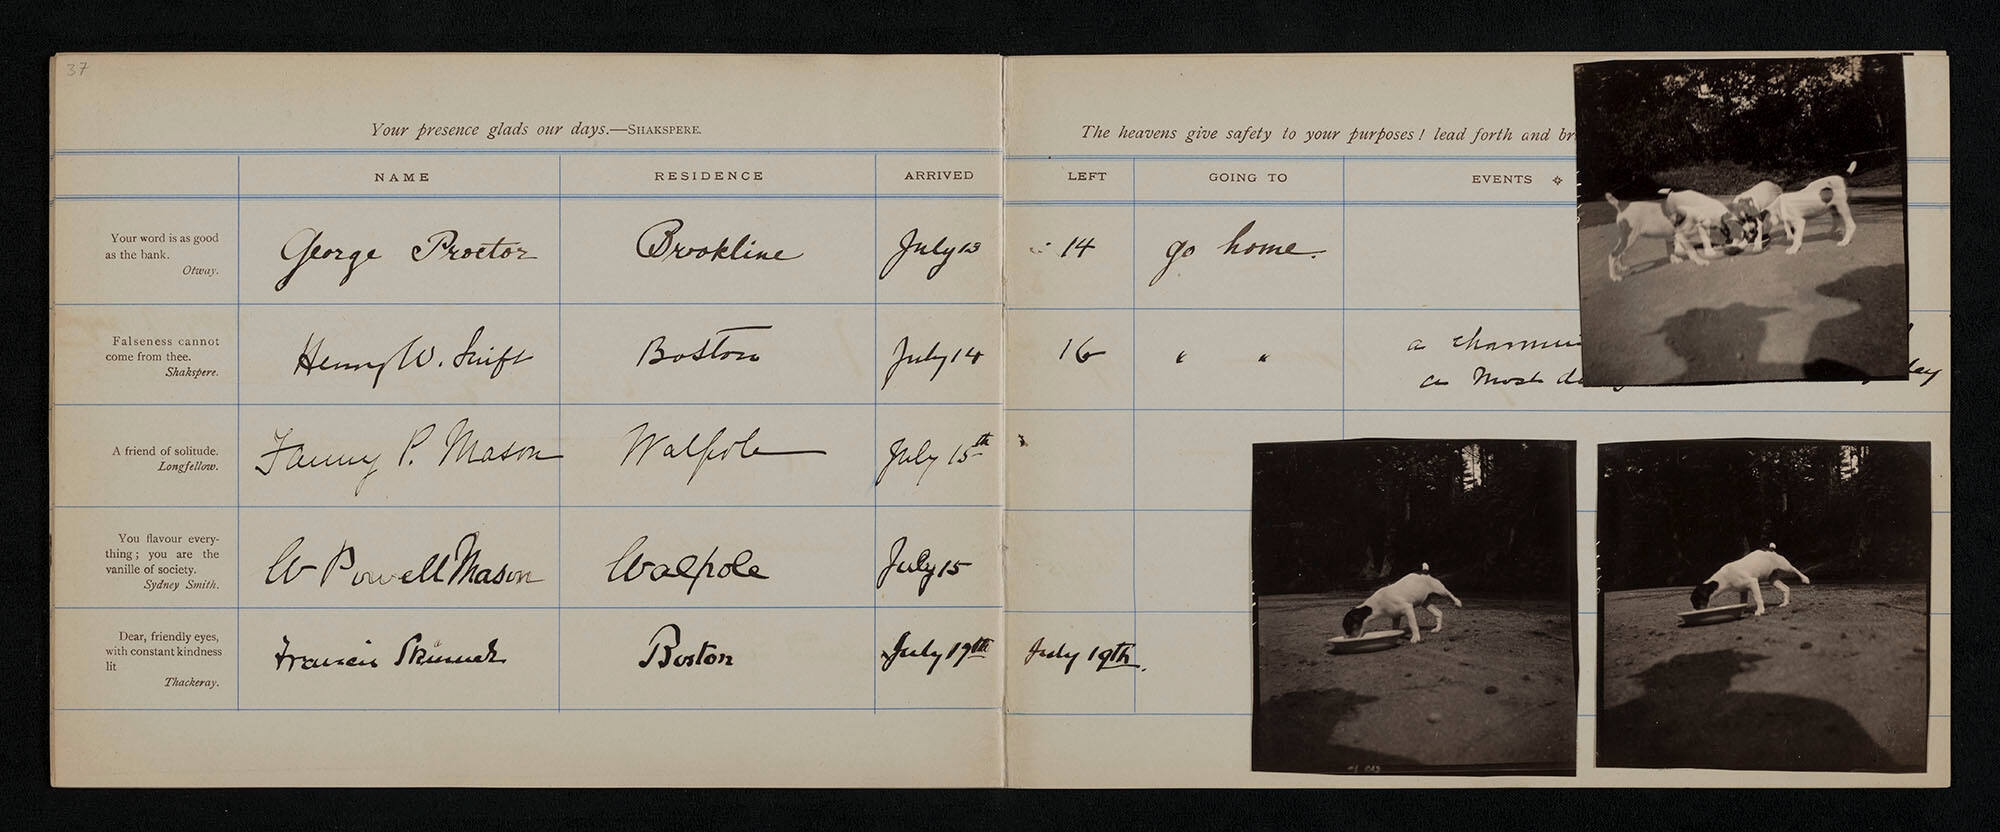 37
Your presence glads our days.—SHAKSPERE.
The heavens give safety to your purposes! lead forth and br
NAME RESIDENCE ARRIVED LEFT GOING TO EVENTS
Your word is as good
as the bank.
Otway.
George Proctor Brookline July 13 14 go home.
Falseness cannot
come from thee.
Shakspere.
Henry W. Swift Boston July 14 16 " "
a charmin
a most d
day
A friend of solitude.
Longfellow.
Fanny P. Mason Walpole July 15th
You flavour every-
thing; you are the
vanille of society.
Sydney Smith.
W Powell Mason Walpole July 15
Dear, friendly eyes,
with constant kindness
lit
Thackeray.
Francis Skinner Boston July 19th July 19th.